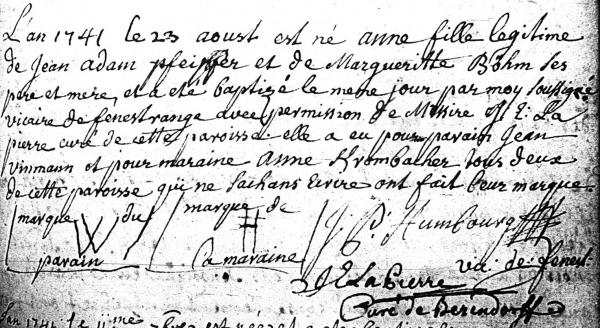 L'an 1741 le 23 aoust est né anne fille legitime
de Jean adam pfeiffer et de Margueritte Böhm ses
pere et mere, et a été baptizé le meme jour par moy soussigné
vicaire de fenestrange avec permission de Messire J: E: La
pierre curé de cette paroisse. elle a eu pour parain Jean
Vinmann et pour maraine Anne Krombacher tous deux
de cette paroisse qui ne sachans Ecrire ont fait leur marque
marque du marque de
W H J P. Humbourg
parain la maraine va. de fenest:
J E La Pierre
Curé de Berendorff
L'an 1741 le